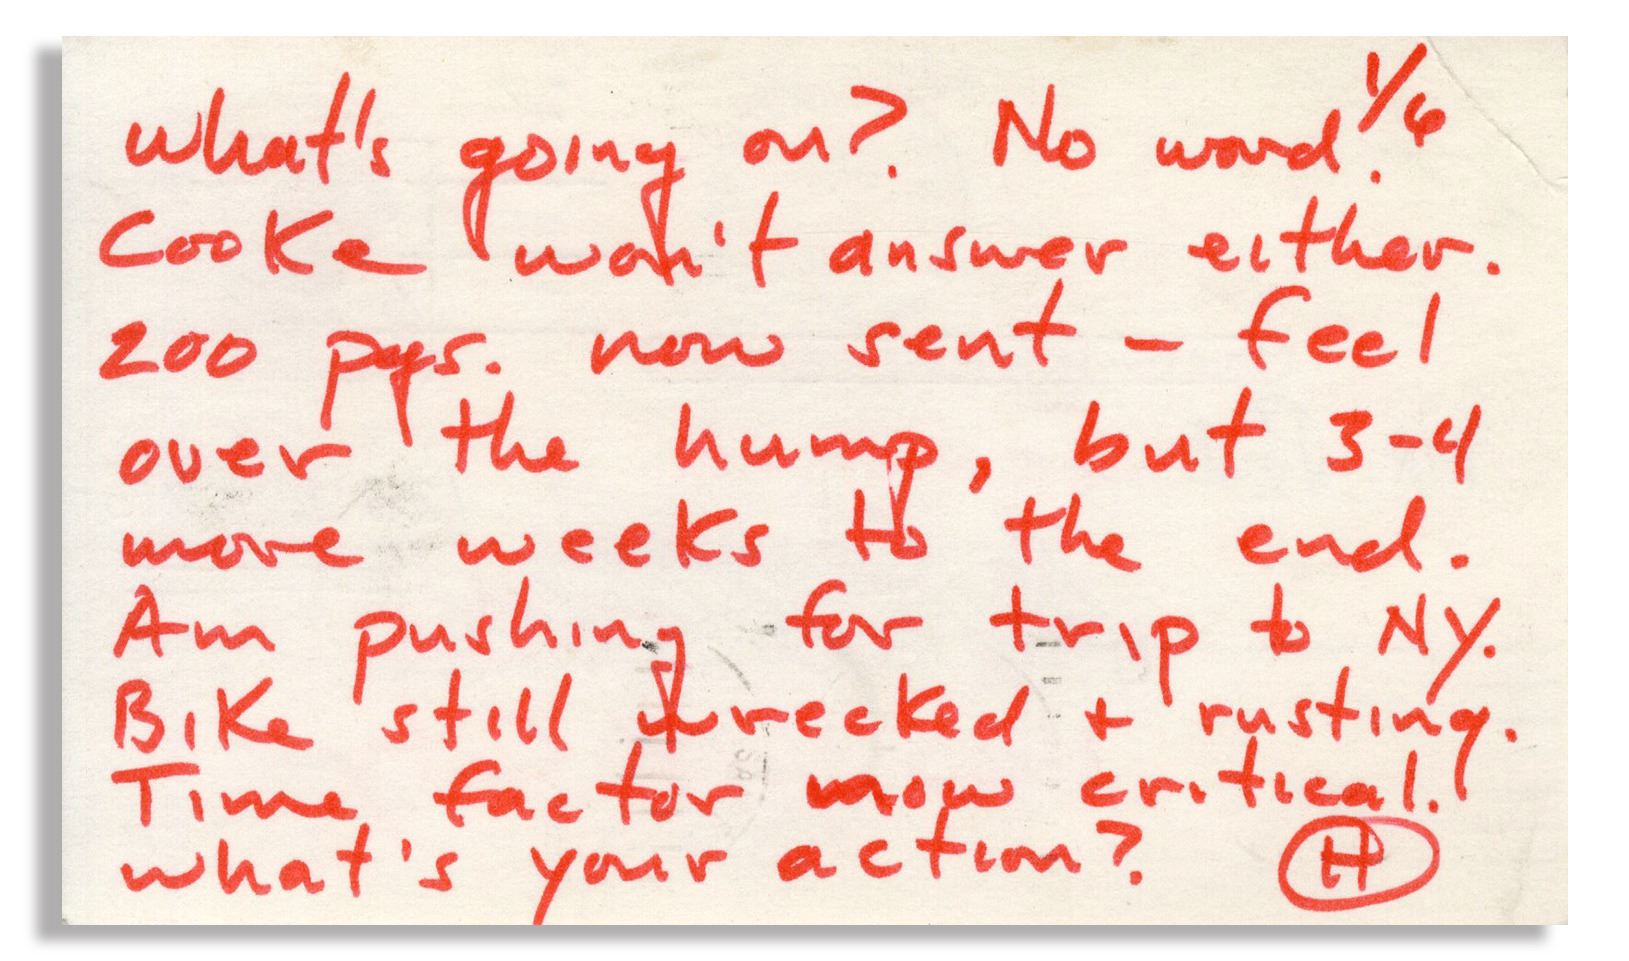 1/6
what's going on? No word.
Cooke won't answer either.
200 pgs. now sent – feel
over the hump, but 3-4
more weeks to the end.
Am pushing for trip to NY.
Bike still wrecked + rusting.
Time factor now critical.
what's your action? H